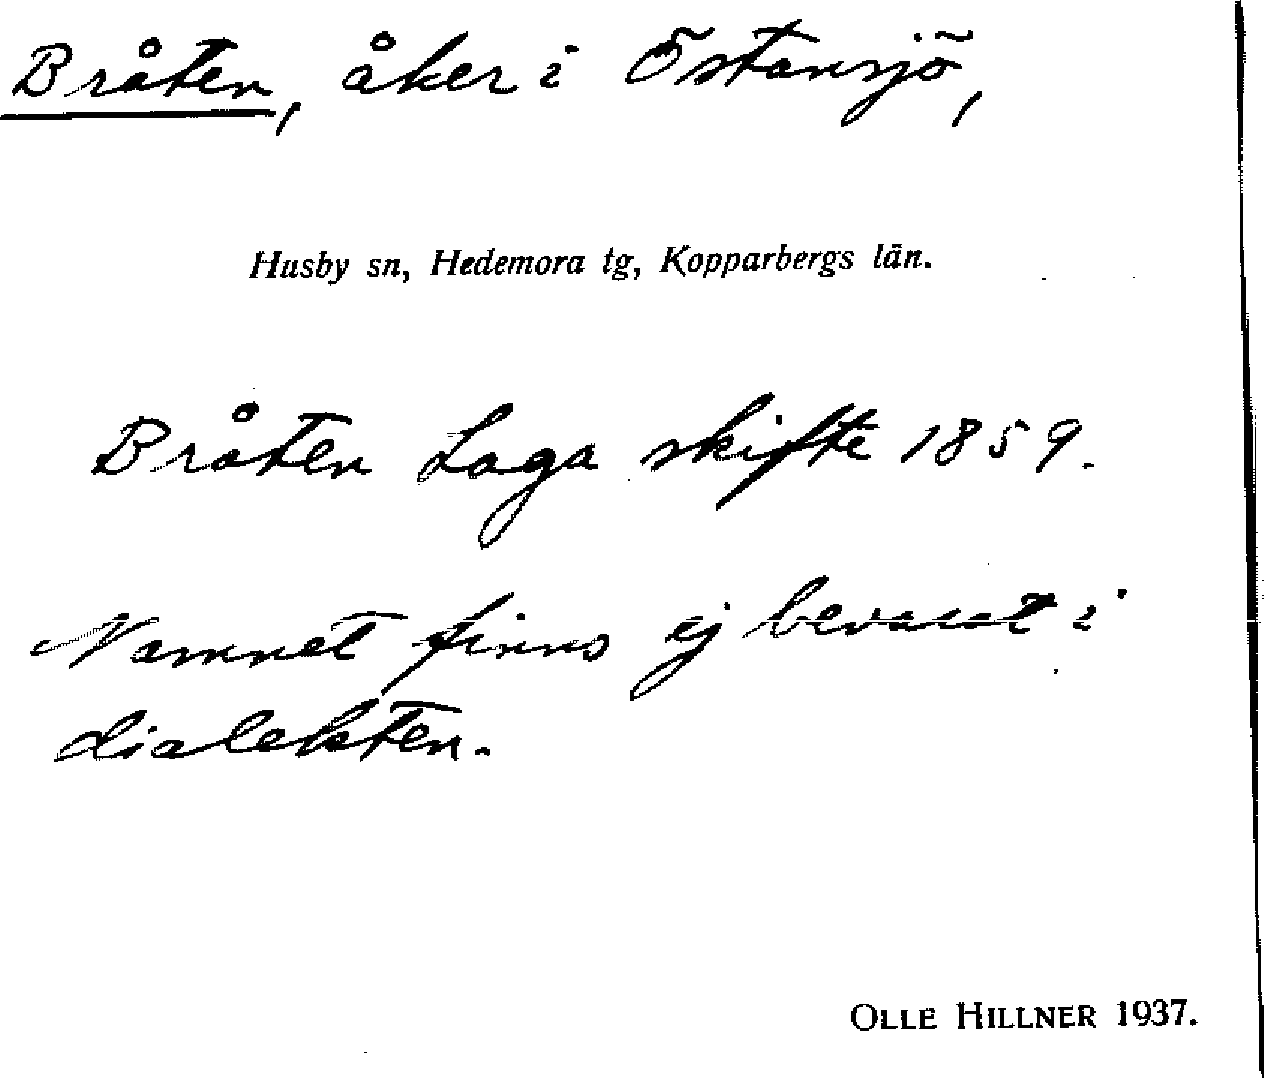 Bråten, åker i Östansjö,
Husby sn, Hedemora tg, Kopparbergs län.
Bråten Laga skifte 1859.
Namnet finns ej bevarat i
dialekten.
OLLE HILLNER 1937.